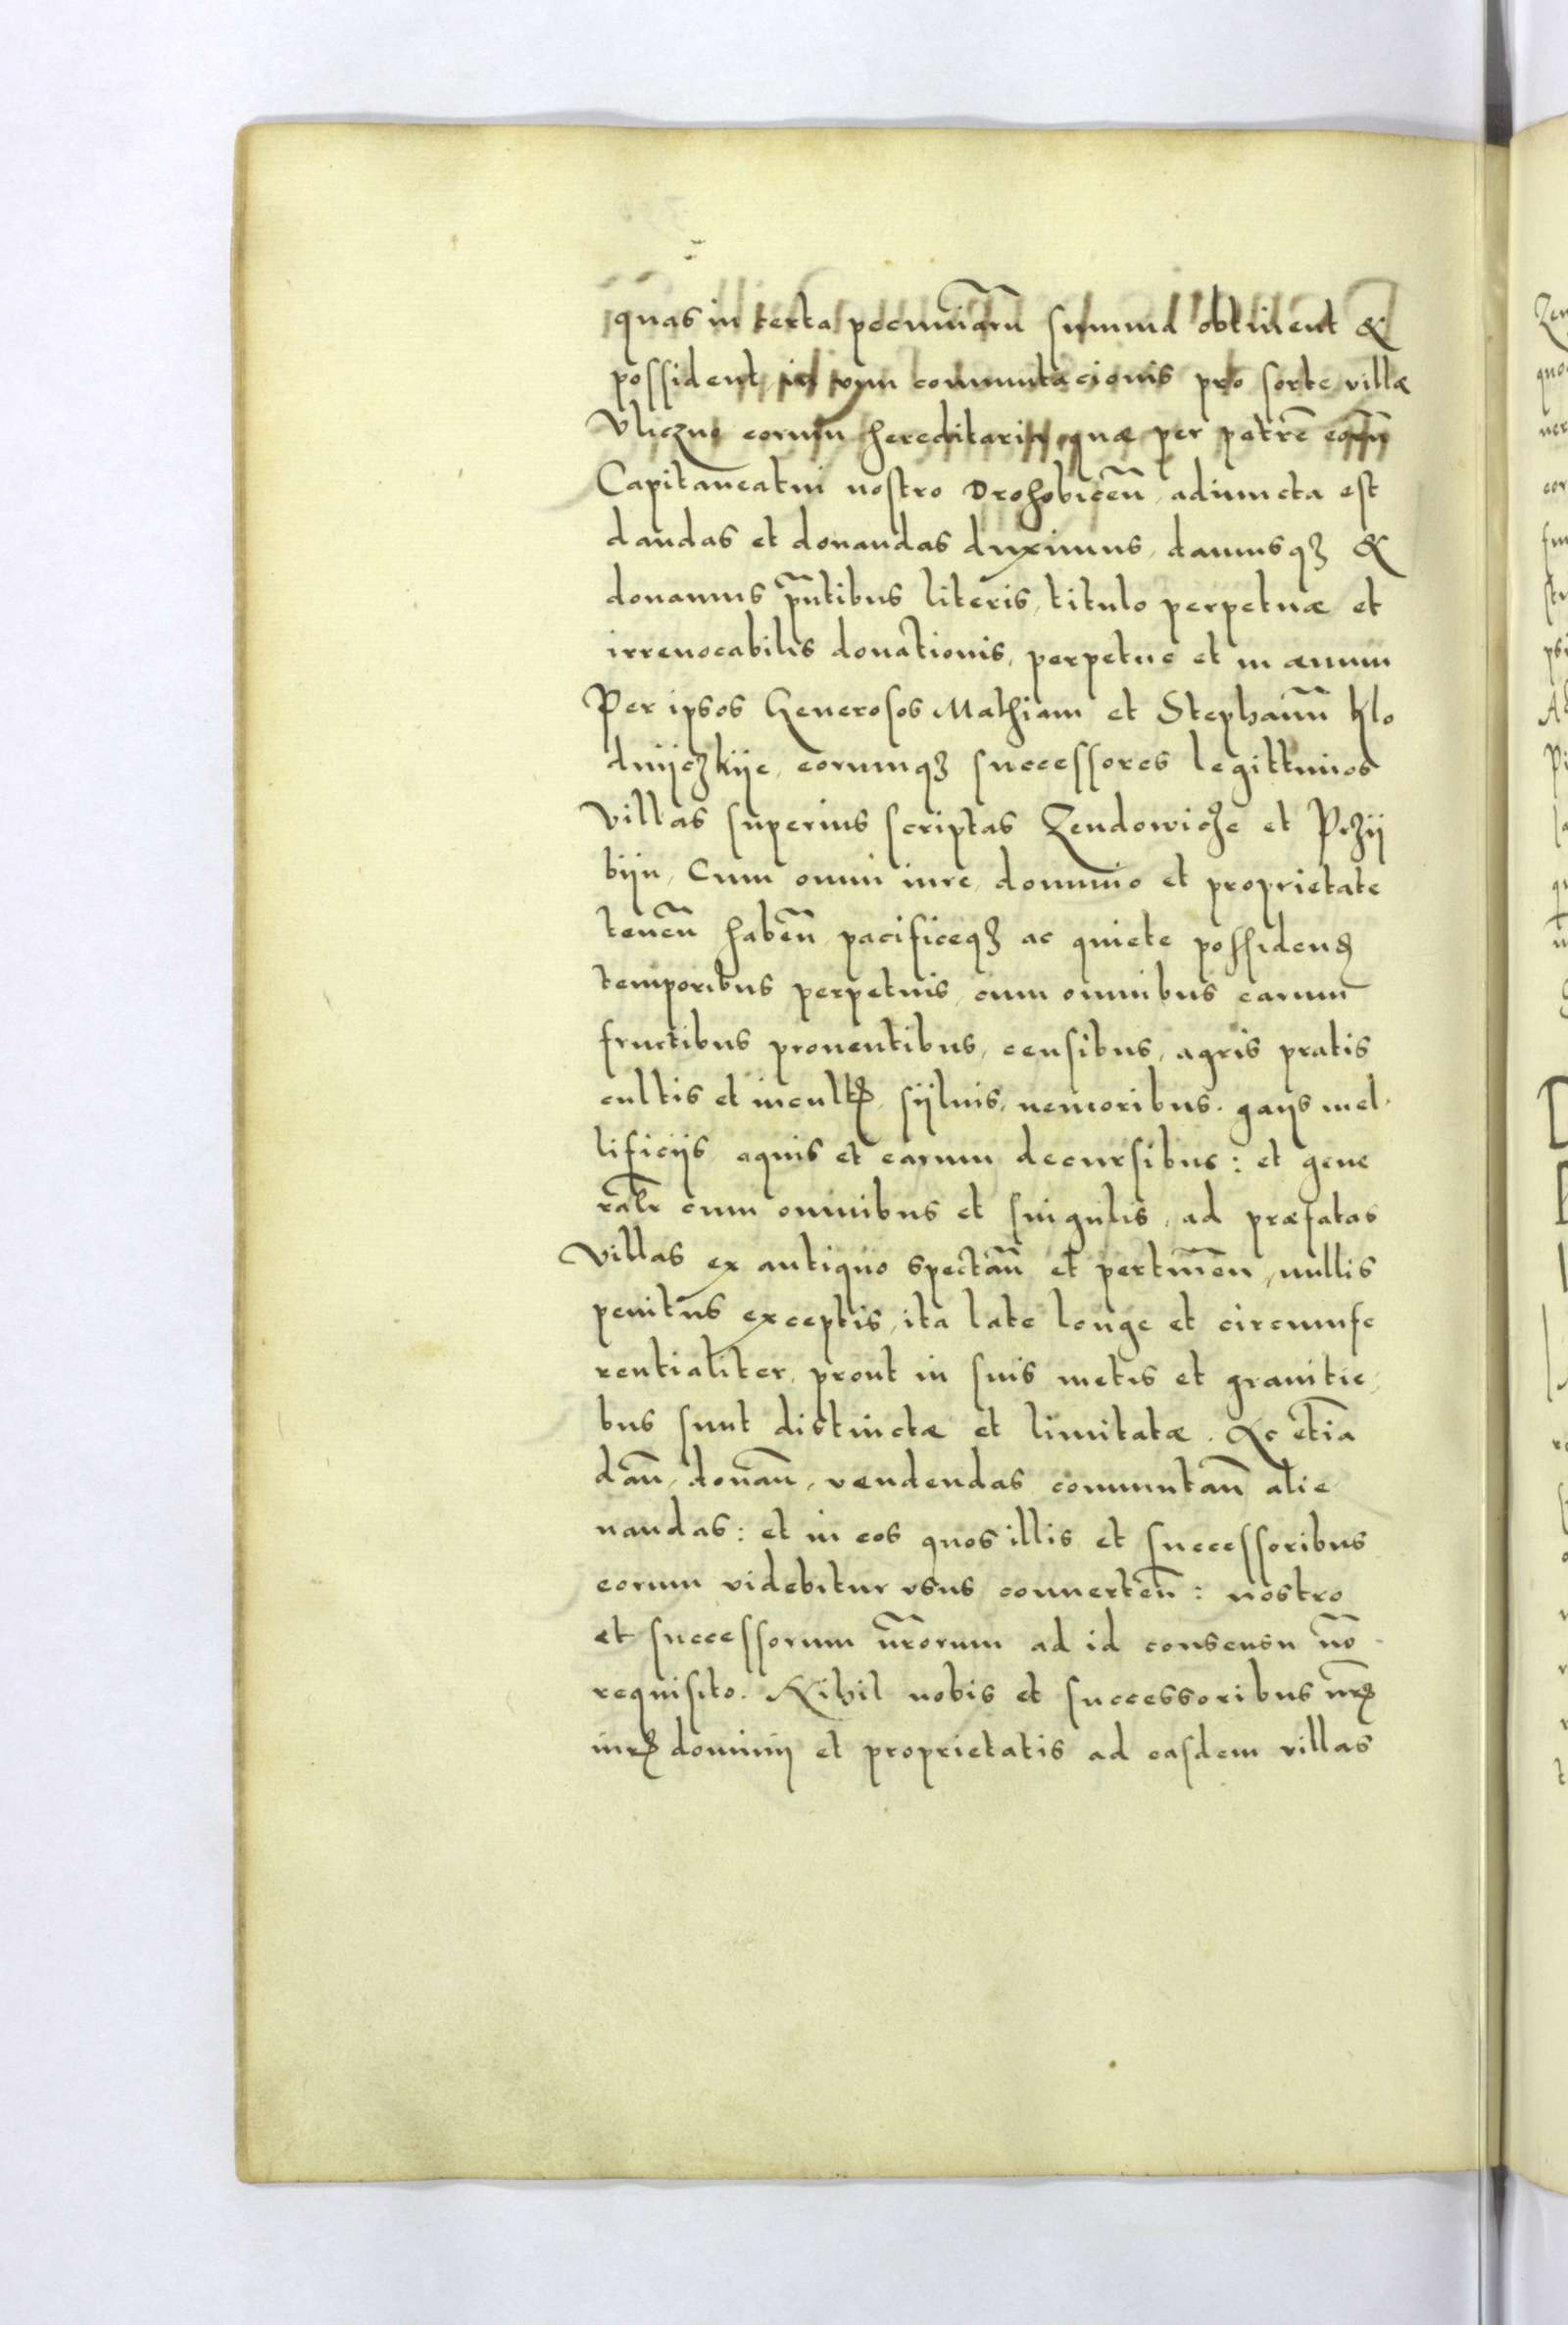 quas in certa pecuniarũ summa obtinent &
possident, in vim commutacionis pro sorte villæ
Vliczno eorum hereditaria, quæ per patrẽ eorũ
Capitaneatui nostro Drohobicen̄, adiuncta est
dandas et donandas duximus, damusqꝫ &
donamus pñtibus literis, titulo perpetuæ et
irreuocabilis donationis, perpetuo et in æuum
Per ipsos Generosos Mathiam et Stephanũ Klo
dnijczkije, eorumqꝫ successores legittimos
Villas superius scriptas Zendowicze et Przij
bijn, Cum omni iure, dominio et proprietate
tenen̄ haben̄ pacificeqꝫ ac quiete possidendꝭ
temporibus perpetuis, cum omnibus earum
fructibus prouentibus, censibus, agris pratis
cultis et incultꝭ, sijluis, nemoribus. gays mel-
lificijs aquis et earum decursibus: et gene
ralr̃ cum omnibus et singulis, ad præfatas
Villas ex antiquo spectan̄ et pertinen̄, nullis
penitus exceptis, ita late longe et circumfe
rentialiter, prout in suis metis et granitie,
bus sunt distinctæ et limitatæ. Ac etiã
dan̄, donan̄, vendendas commutan̄ alie
nandas: et in eos quos illis et successoribus
eorum videbitur vsus conuerten̄: nostro
et successorum nr̃orum ad id consensu nõ
requisito. Nihil nobis et successoribus nr̃ꝭ
iurꝭ dominij et proprietatis ad easdem villas